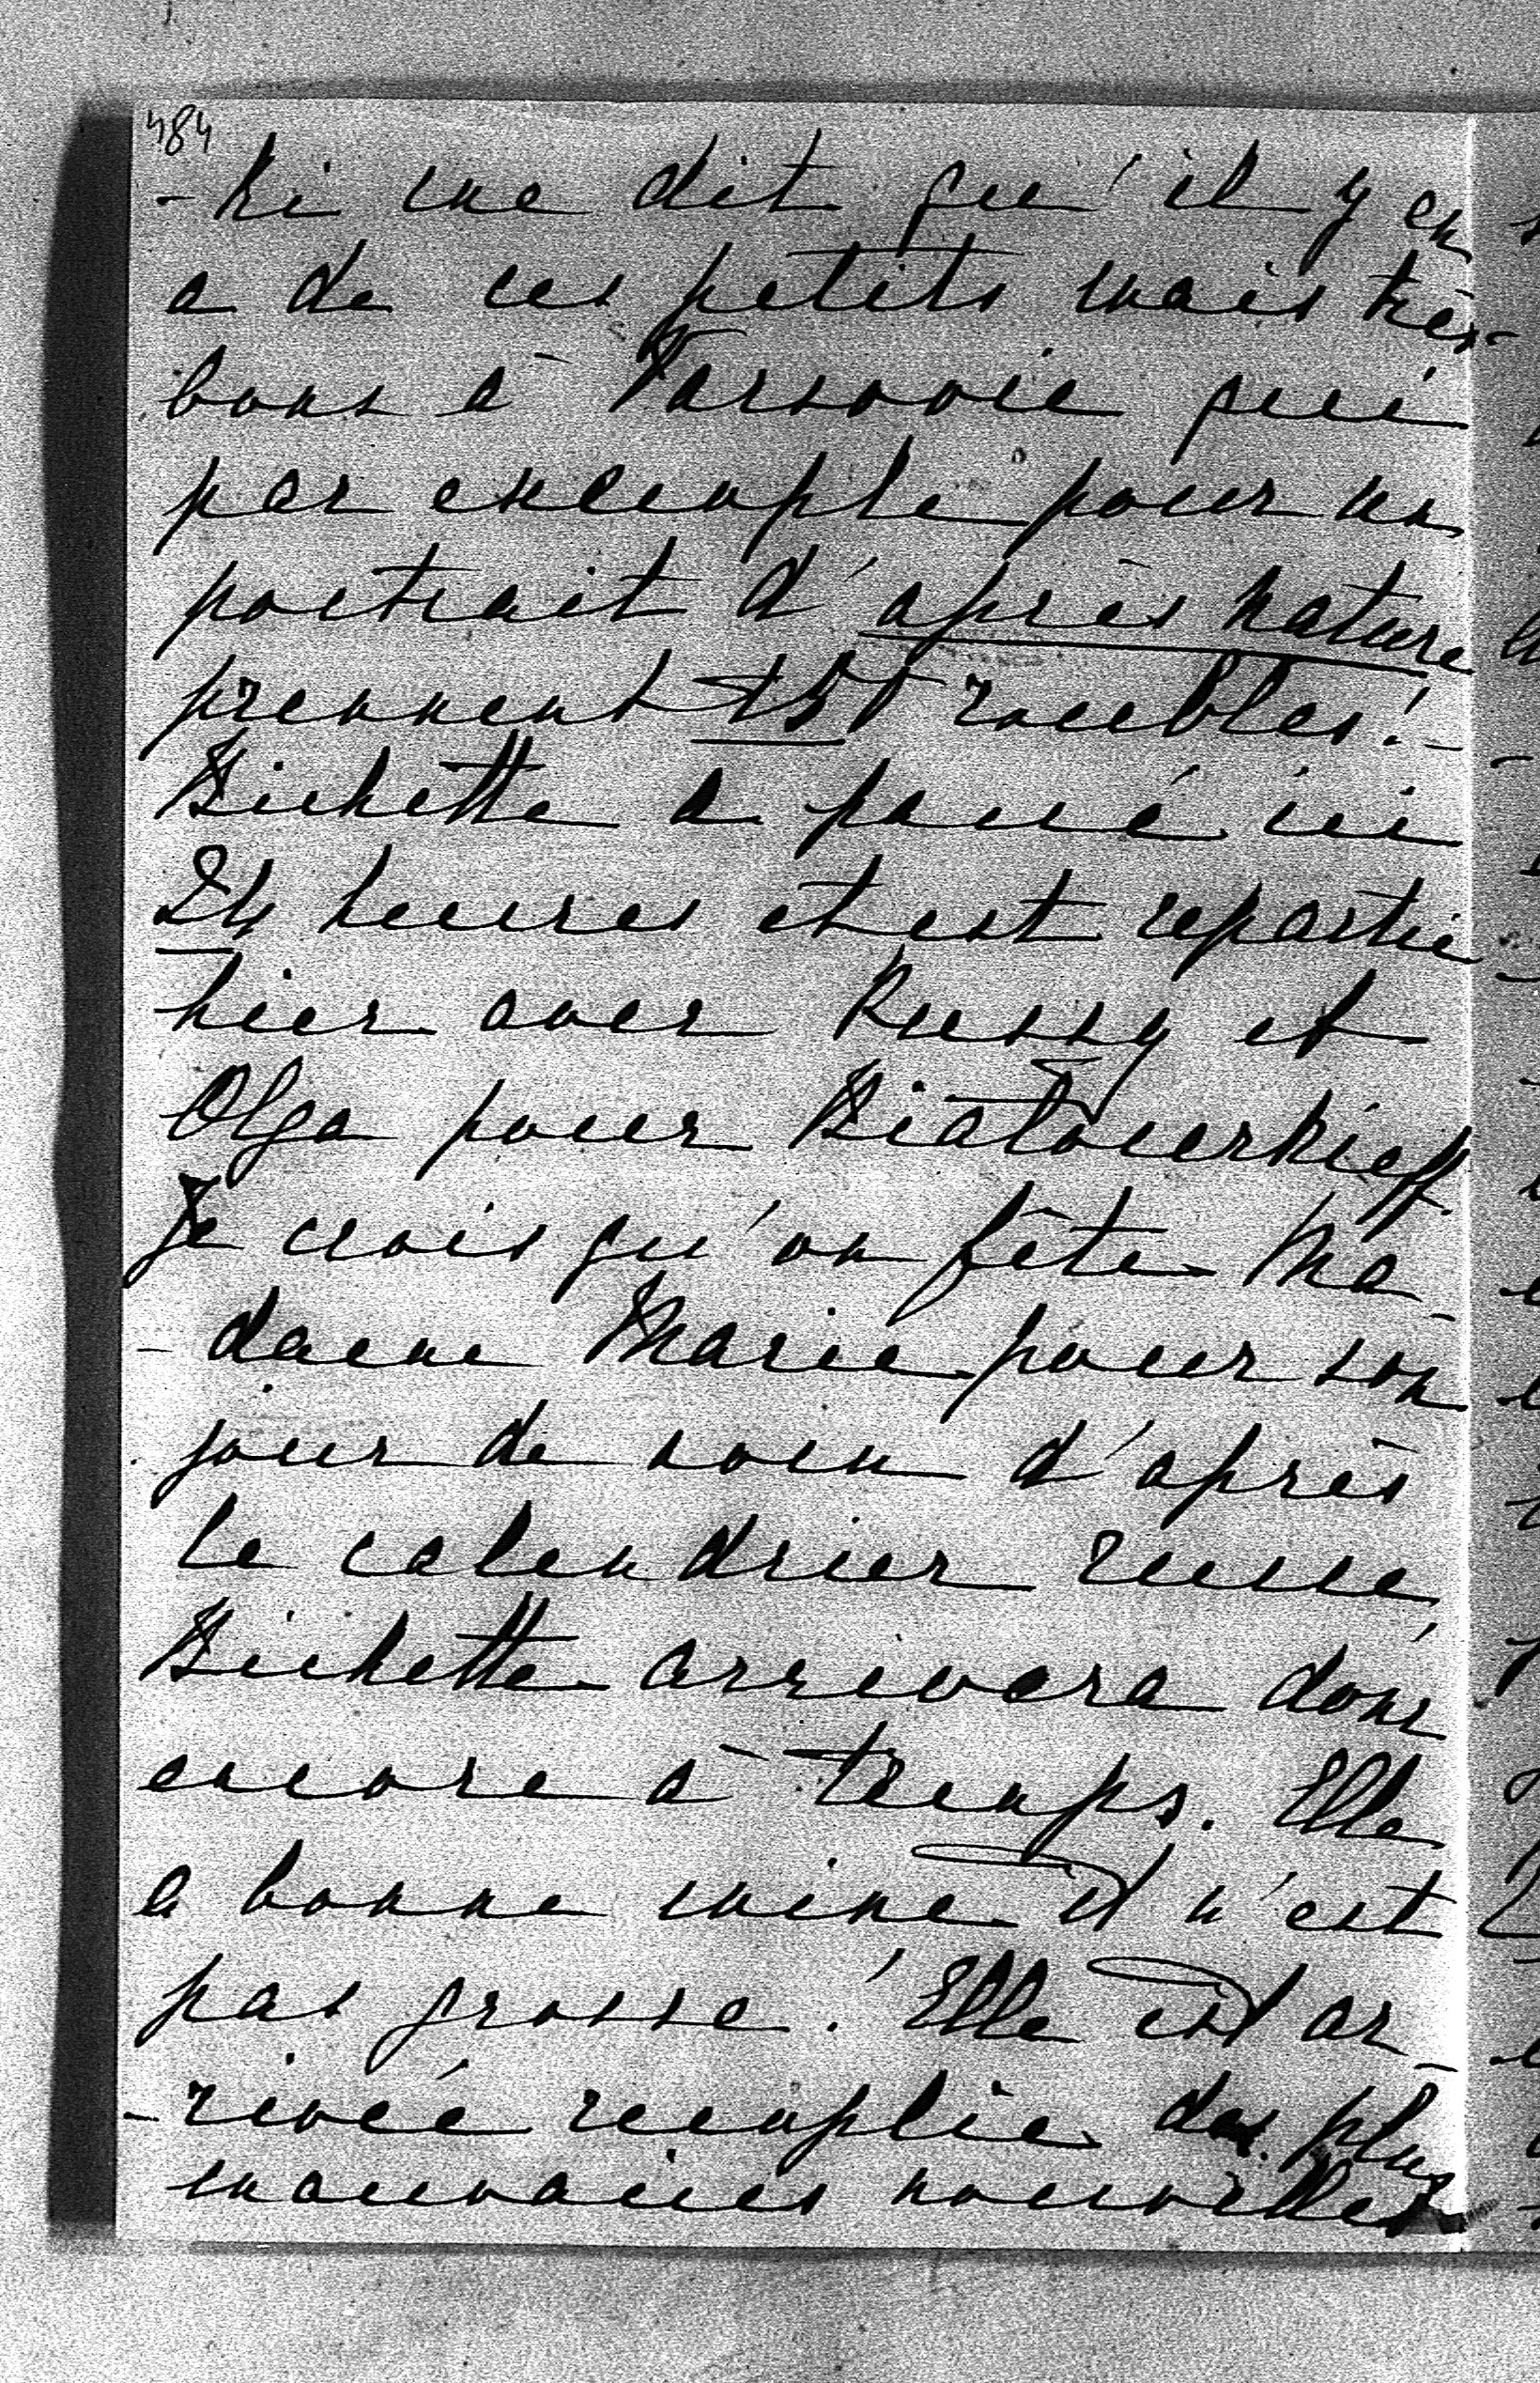 484
-ki me dit qu'il y en
a de ces petits mais très
bons à Varsovie qui
par exemple pour un
portrait d'après nature
prennent 15 roubles!
Bichette a passé ici
24 heures et est repartie
hier avec Russy et
Olga pour Białocerkieff.
Je crois qu'on fête Ma-
-dame Marie pour son
jour de nom d'après
le calendrier russe,
Bichette arrivera donc
encore à temps. Elle
a bonne mine et n'est
pas grosse! Elle est ar-
-rivée remplie des plus
mauvaises nouvelles